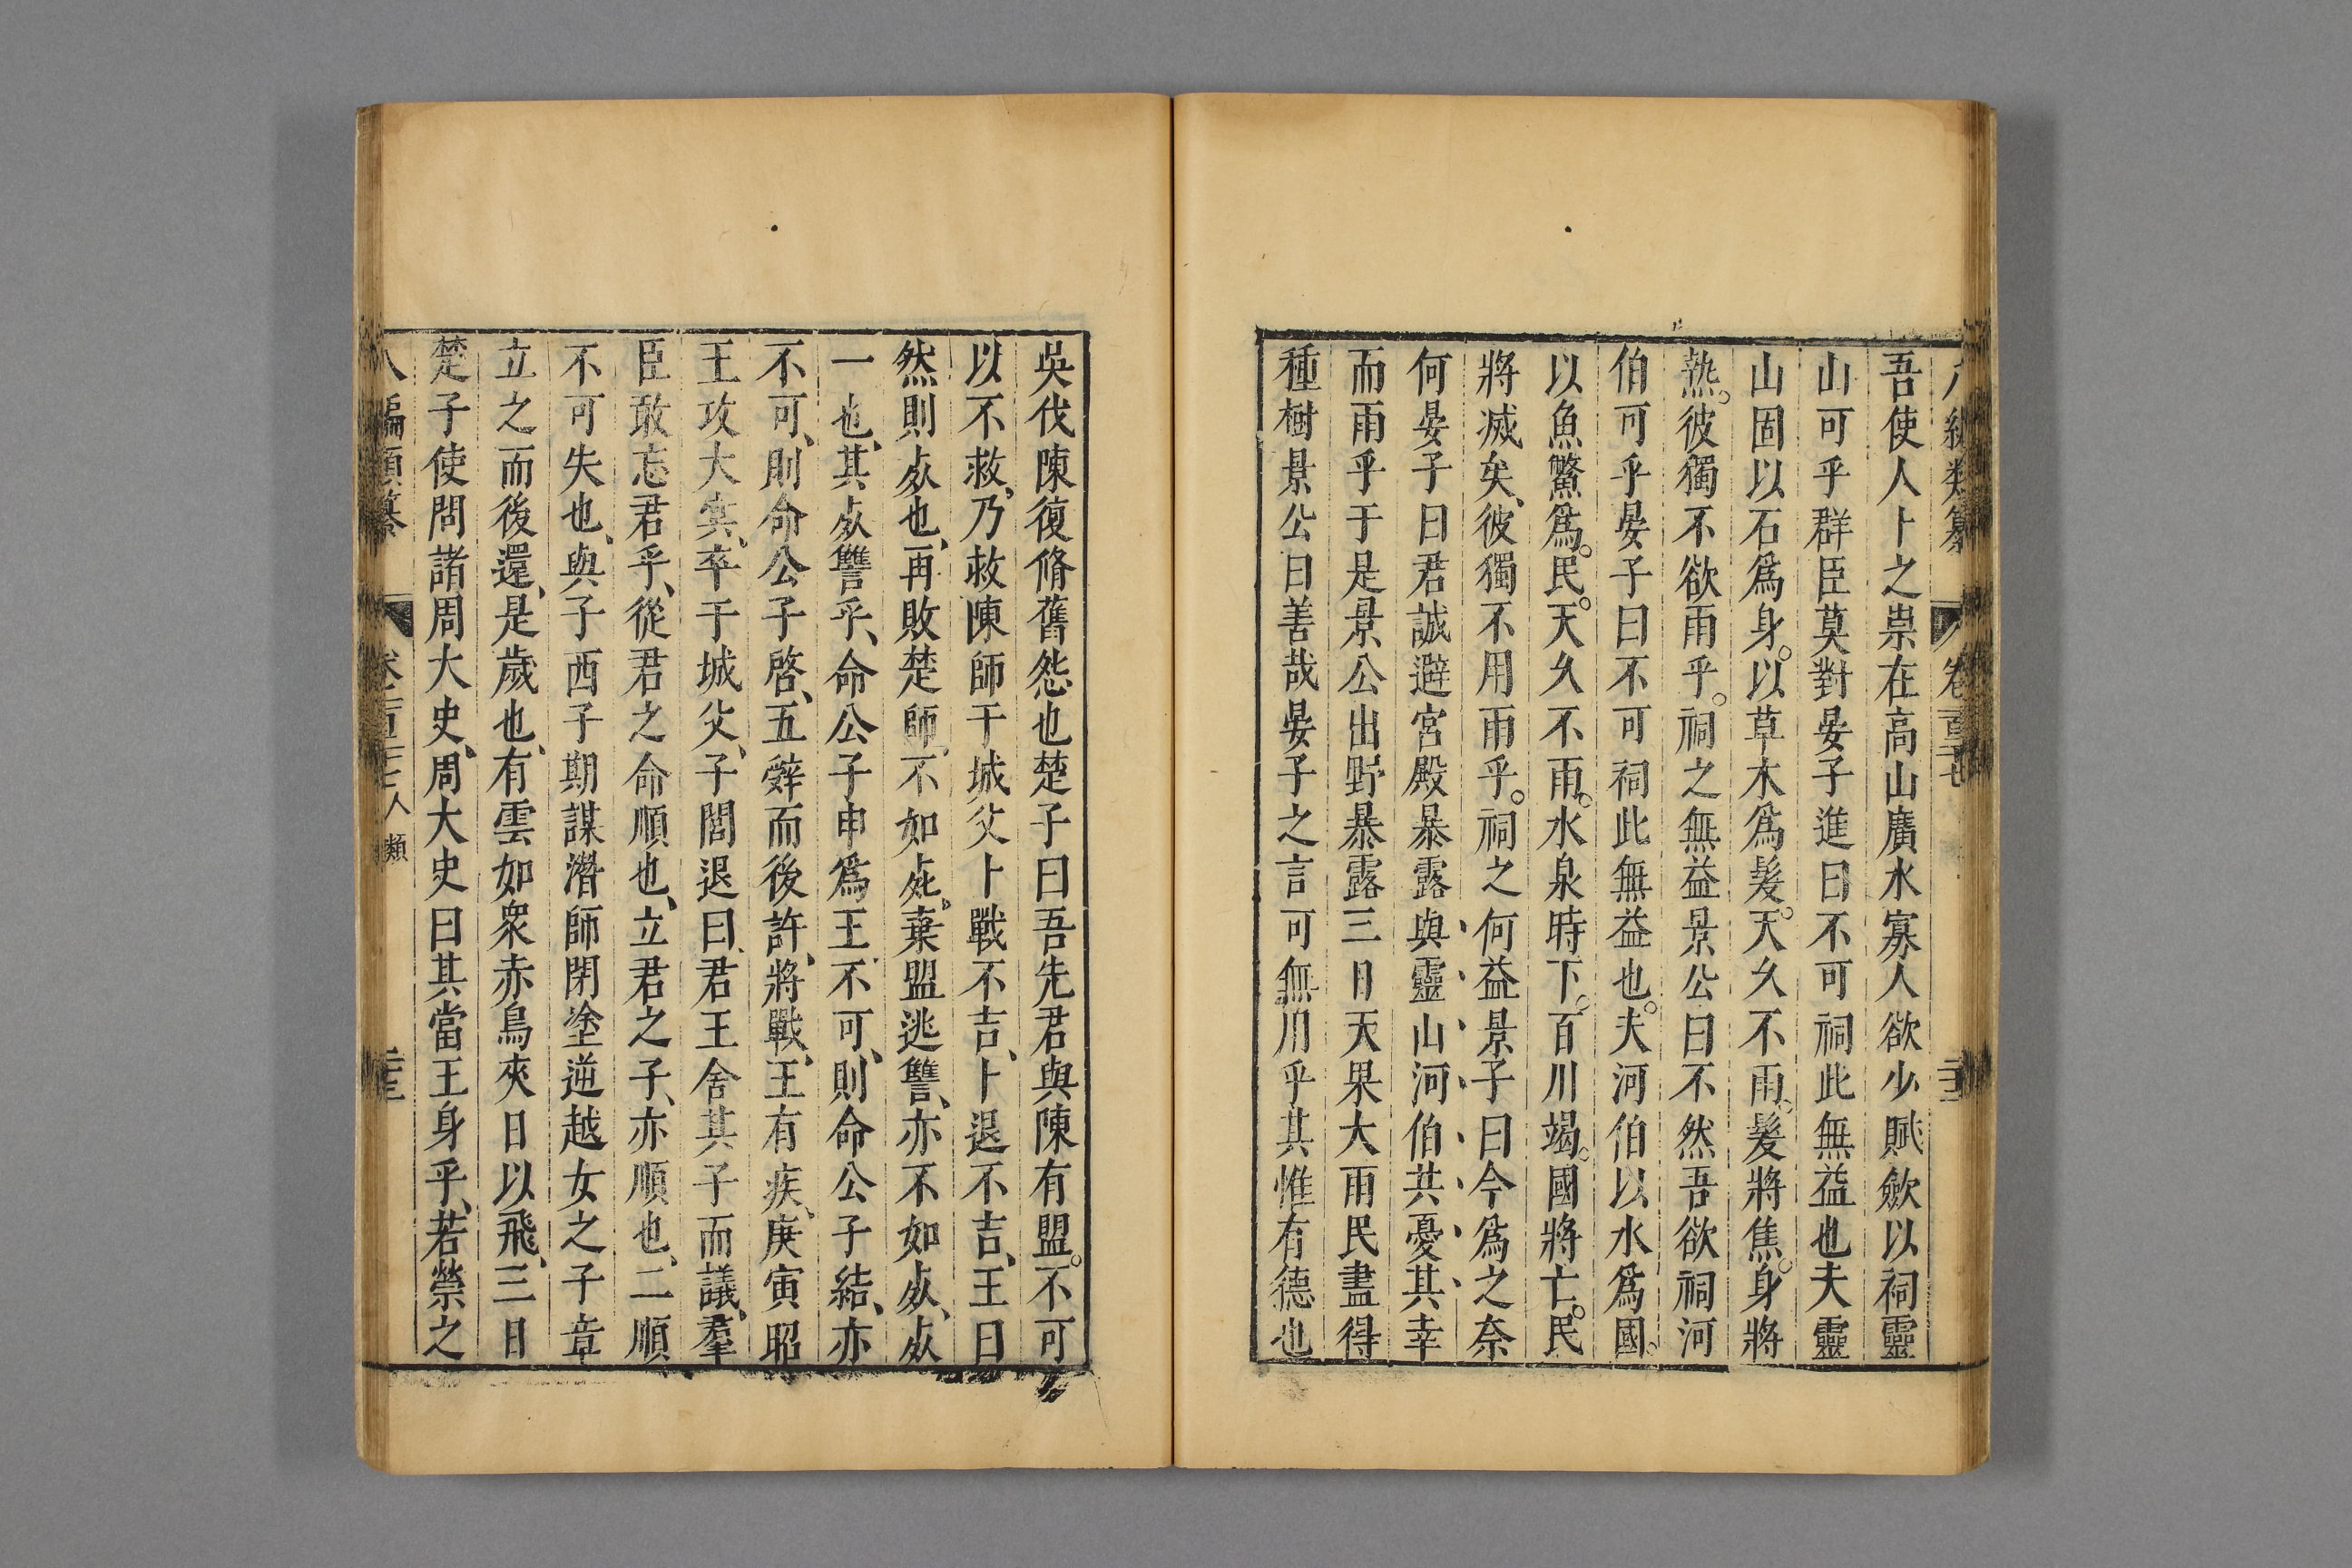 吾使人卜之祟在高山廣水寡人欲少賦斂以祠靈
山可乎群臣莫對晏子進曰不可祠此無益也夫靈
山固以石爲身。以草木爲髮。天久不雨。髮將焦。身將
熱。彼獨不欲雨乎。祠之無益景公曰不然吾欲祠河
伯可乎晏子曰不可祠此無益也。夫河伯以水爲國。
以魚鱉爲。民。天久不雨。水泉時下。百川竭。國將亡。民
將滅矣、彼獨不用雨乎。祠之何益景子曰今爲之奈
何晏子曰君誠避宮殿暴露與靈山河伯共憂其幸
而雨乎于是景公出野暴露三日天果大雨民盡得
種樹景公曰善哉晏子之言可無用乎其惟有德也
吳伐陳復脩舊怨也楚子曰吾先君與陳有盟。不可
以不救、乃救陳師于城父卜戰不吉、卜退不吉、王曰
然則死也、再敗楚師、不如死。棄盟逃讐、亦不如死、死
一也、其死讐乎、命公子申爲王不可、則命公子結、亦
不可、則命公子啓、五辤而後許、將戰、王有疾、庚寅昭
王攻大㝠、卒于城父、子閭退曰、君王舍其子而議、羣
臣敢忘君乎、從君之命順也、立君之子、亦順也、二順
不可失也、與子西子期謀潛師閉塗逆越女之子章
立之而後還、是歲也、有雲如衆赤鳥夾日以飛、三日
楚子使問諸周大史、周大史曰其當王身乎、若禜之
八編類纂 卷二百三十七 人類